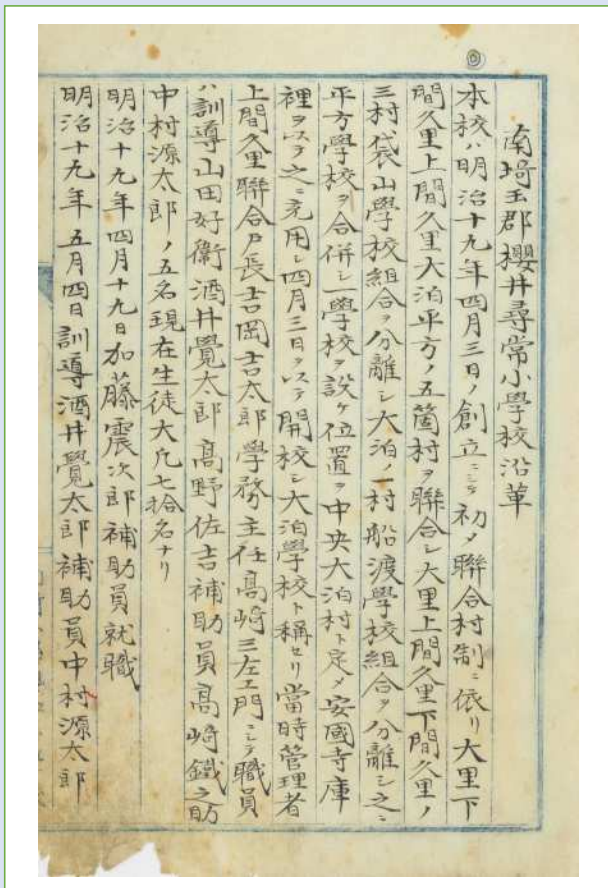 南埼玉郡櫻井尋常小學校沿革
本校ハ明治十九年四月三日ノ創立ニシテ初メ聯合村制ニ依リ大里下
間久里上間久里大泊平方ノ五箇村ヲ聯合シ大里上間久里下間久里ノ
三村袋山學校組合ヲ分離シ大泊ノ一村船渡學校組合ヲ分離シ之ニ
平方學校ヲ合併シ一學校ヲ設ケ位置ヲ中央大泊村ト定メ安國寺庫
裡ヲ以テ之ニ充用シ四月三日ヲ以テ開校シ大泊學校ト稱セリ當時管理者
上間久里聯合戸長吉岡吉太郎學務主任高崎三左エ門ニシテ職員
ハ訓導山田好衛酒井覺太郎高野佐吉補助員高崎鐵之助
中村源太郎ノ五名現在生徒大凡七拾名ナリ
明治十九年四月十九日加藤震次郎補助員就職
明治十九年五月四日訓導酒井覺太郎補助員中村源太郎